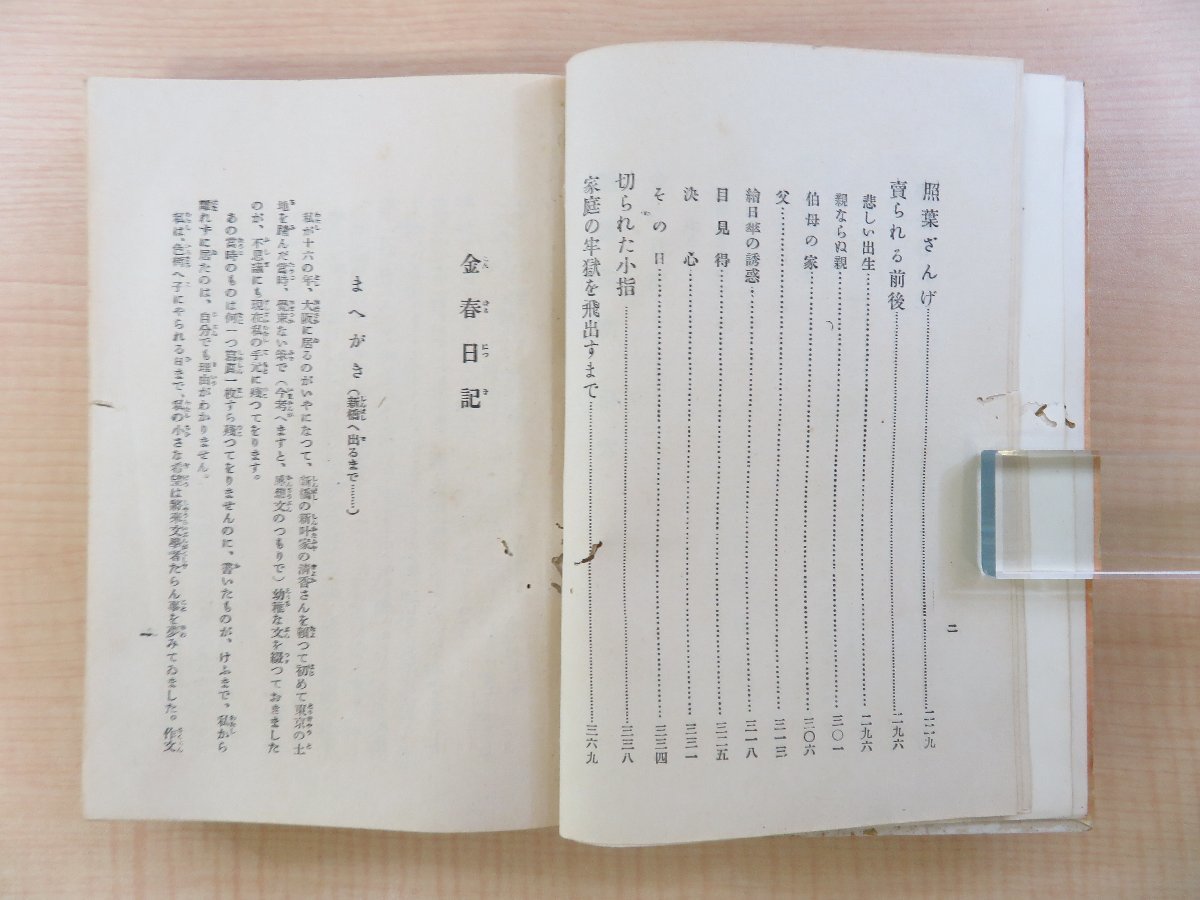 照葉ざんげ……二二九
賣られる前後……二九六
悲しい出生……二九六
親ならぬ親……三〇一
伯母の家……三〇六
父……三一三
繪日傘の誘惑……三一八
目見得……三二五
決心……三三一
その日……三三四
切られた小指……三三八
家庭の牢獄を飛出すまで……三六九
二
金春日記
まへがき(新橋へ出るまで……)
私が十六の年、大阪に居るのがいやになつて、新橋の新叶家の清香さんを頼つて初めて東京の土
地を踏んだ當時、覺束ない筆で(今考へますと、美文のつもりで)幼稚な文を綴つておきました
のが、不思議にも現在私の手元に殘つてをります。
あの當時のものは何一つ寫眞一枚すら殘つてをりませんのに、書いたものが、けふまで、私から
離れずに居たのは、自分でも理由がわかりません。
私は、色町へ子にやられる日まで、私の小さな希望は將來文學者たらん事を夢みてゐました。作文
一